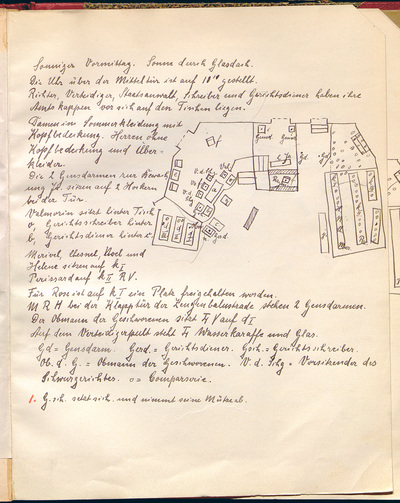 Sonniger Vormittag. Sonne durch Glasdach.
Die Uhr über der Mitteltür ist auf 10¹⁰ gestellt.
Richter, Verteidiger, Staatsanwalt, Schreiber und Gerichtsdiener haben ihre
Amtskappen vor sich auf den Tischen liegen.
Damen in Sommerkleidung mit
Kopfbedeckung. Herren ohne
Kopfbedeckung und Über-
kleider.
Die 2 Gendarmen zur Bewach
ung sitzen auf 2 Hockern
bei der Tür.
Valmorin sitzt hinter Tisch
a, Gerichtsschreiber hinter
b, Gerichtsdiener hinter c.
Merivel, Nessel, Noel und
Helene sitzen auf k I
Perissard auf k II R V.
Für Rose ist auf k I ein Platz freigehalten worden.
M R H bei der Klapptür der Zeugenbalustrade stehen 2 Gensdarmen.
Der Obmann der Geschworenen sitzt auf d I
Auf dem Verteidigerpult steht Wasserkaraffe und Glas.
Gd = Gensdarm. Gerd. = Gerichtsdiener. Gsch. = Gerichtsschreiber.
Ob. d. G. = Obmann der Geschworenen. V. d. Schg = Vorsitzender des
Schwurgerichtes. o = Comparserie.
1. G. sch. setzt sich und nimmt seine Mütze ab.